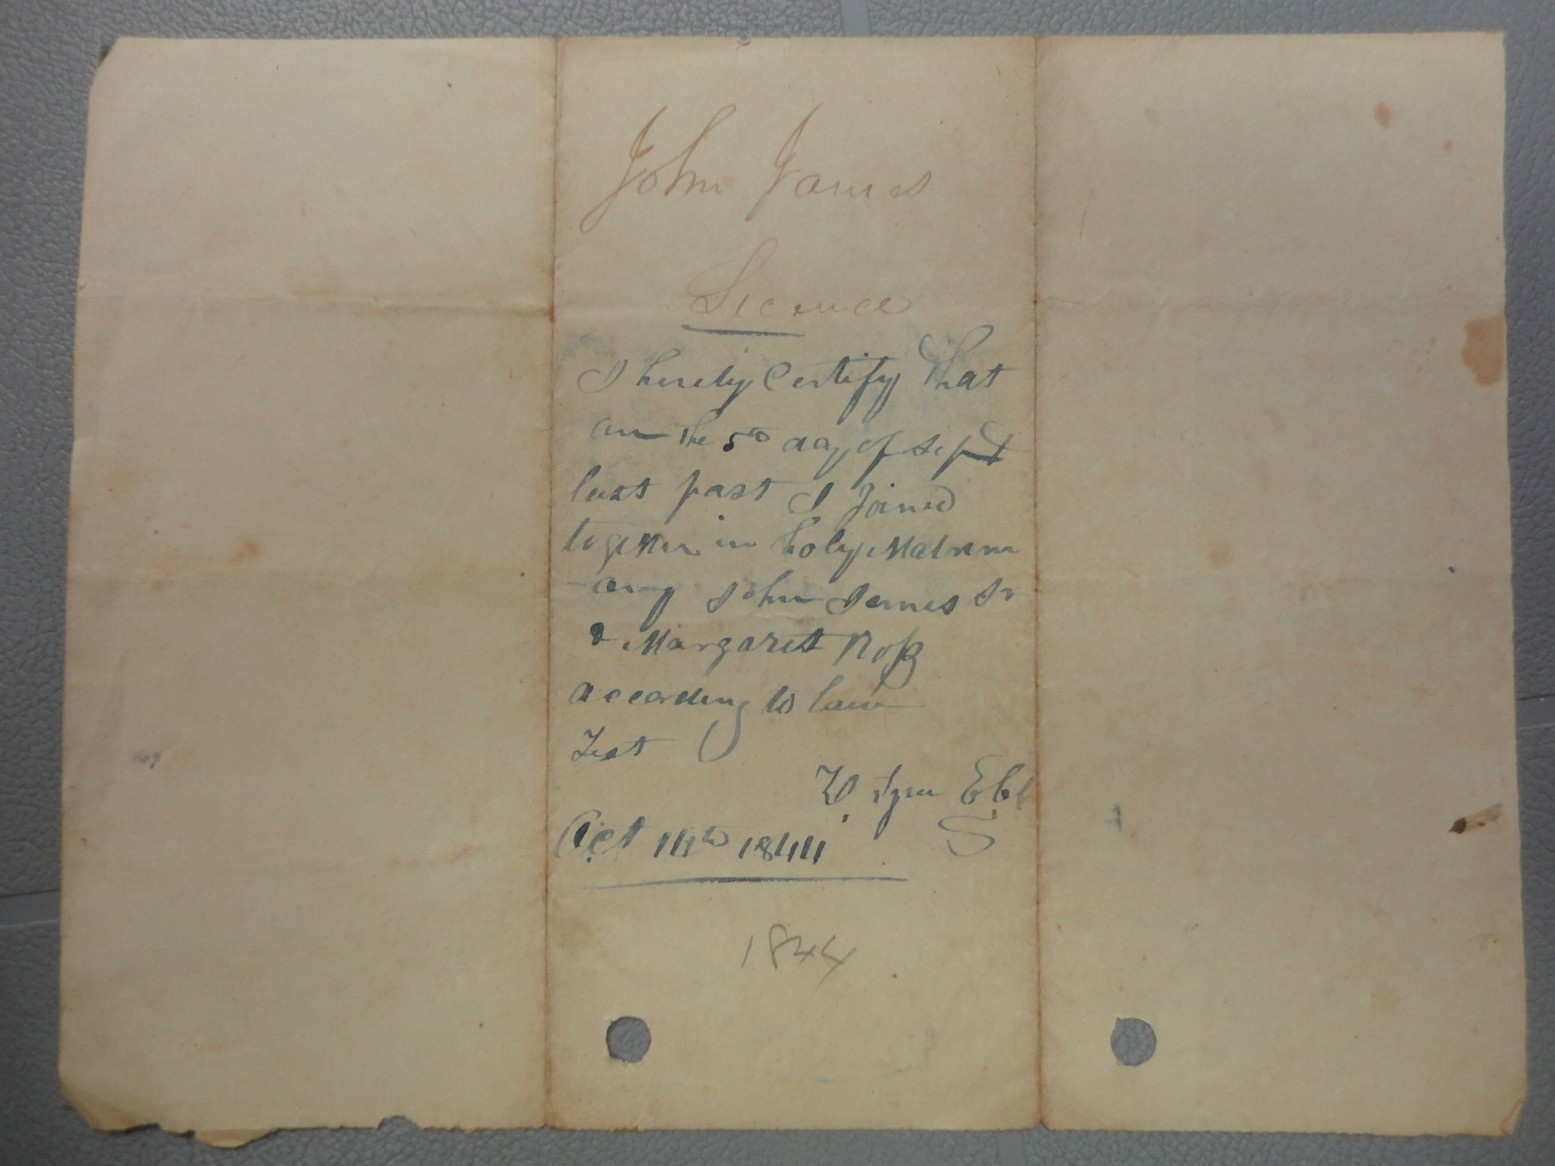 John James
Licence
I hereby Certify that
on the 5th day of Sept
last past I Joined
together in holy Matrim
-ony John James Sr
& Margaret Roſs
according to law
Test
W
Oct 14th 1844
1844